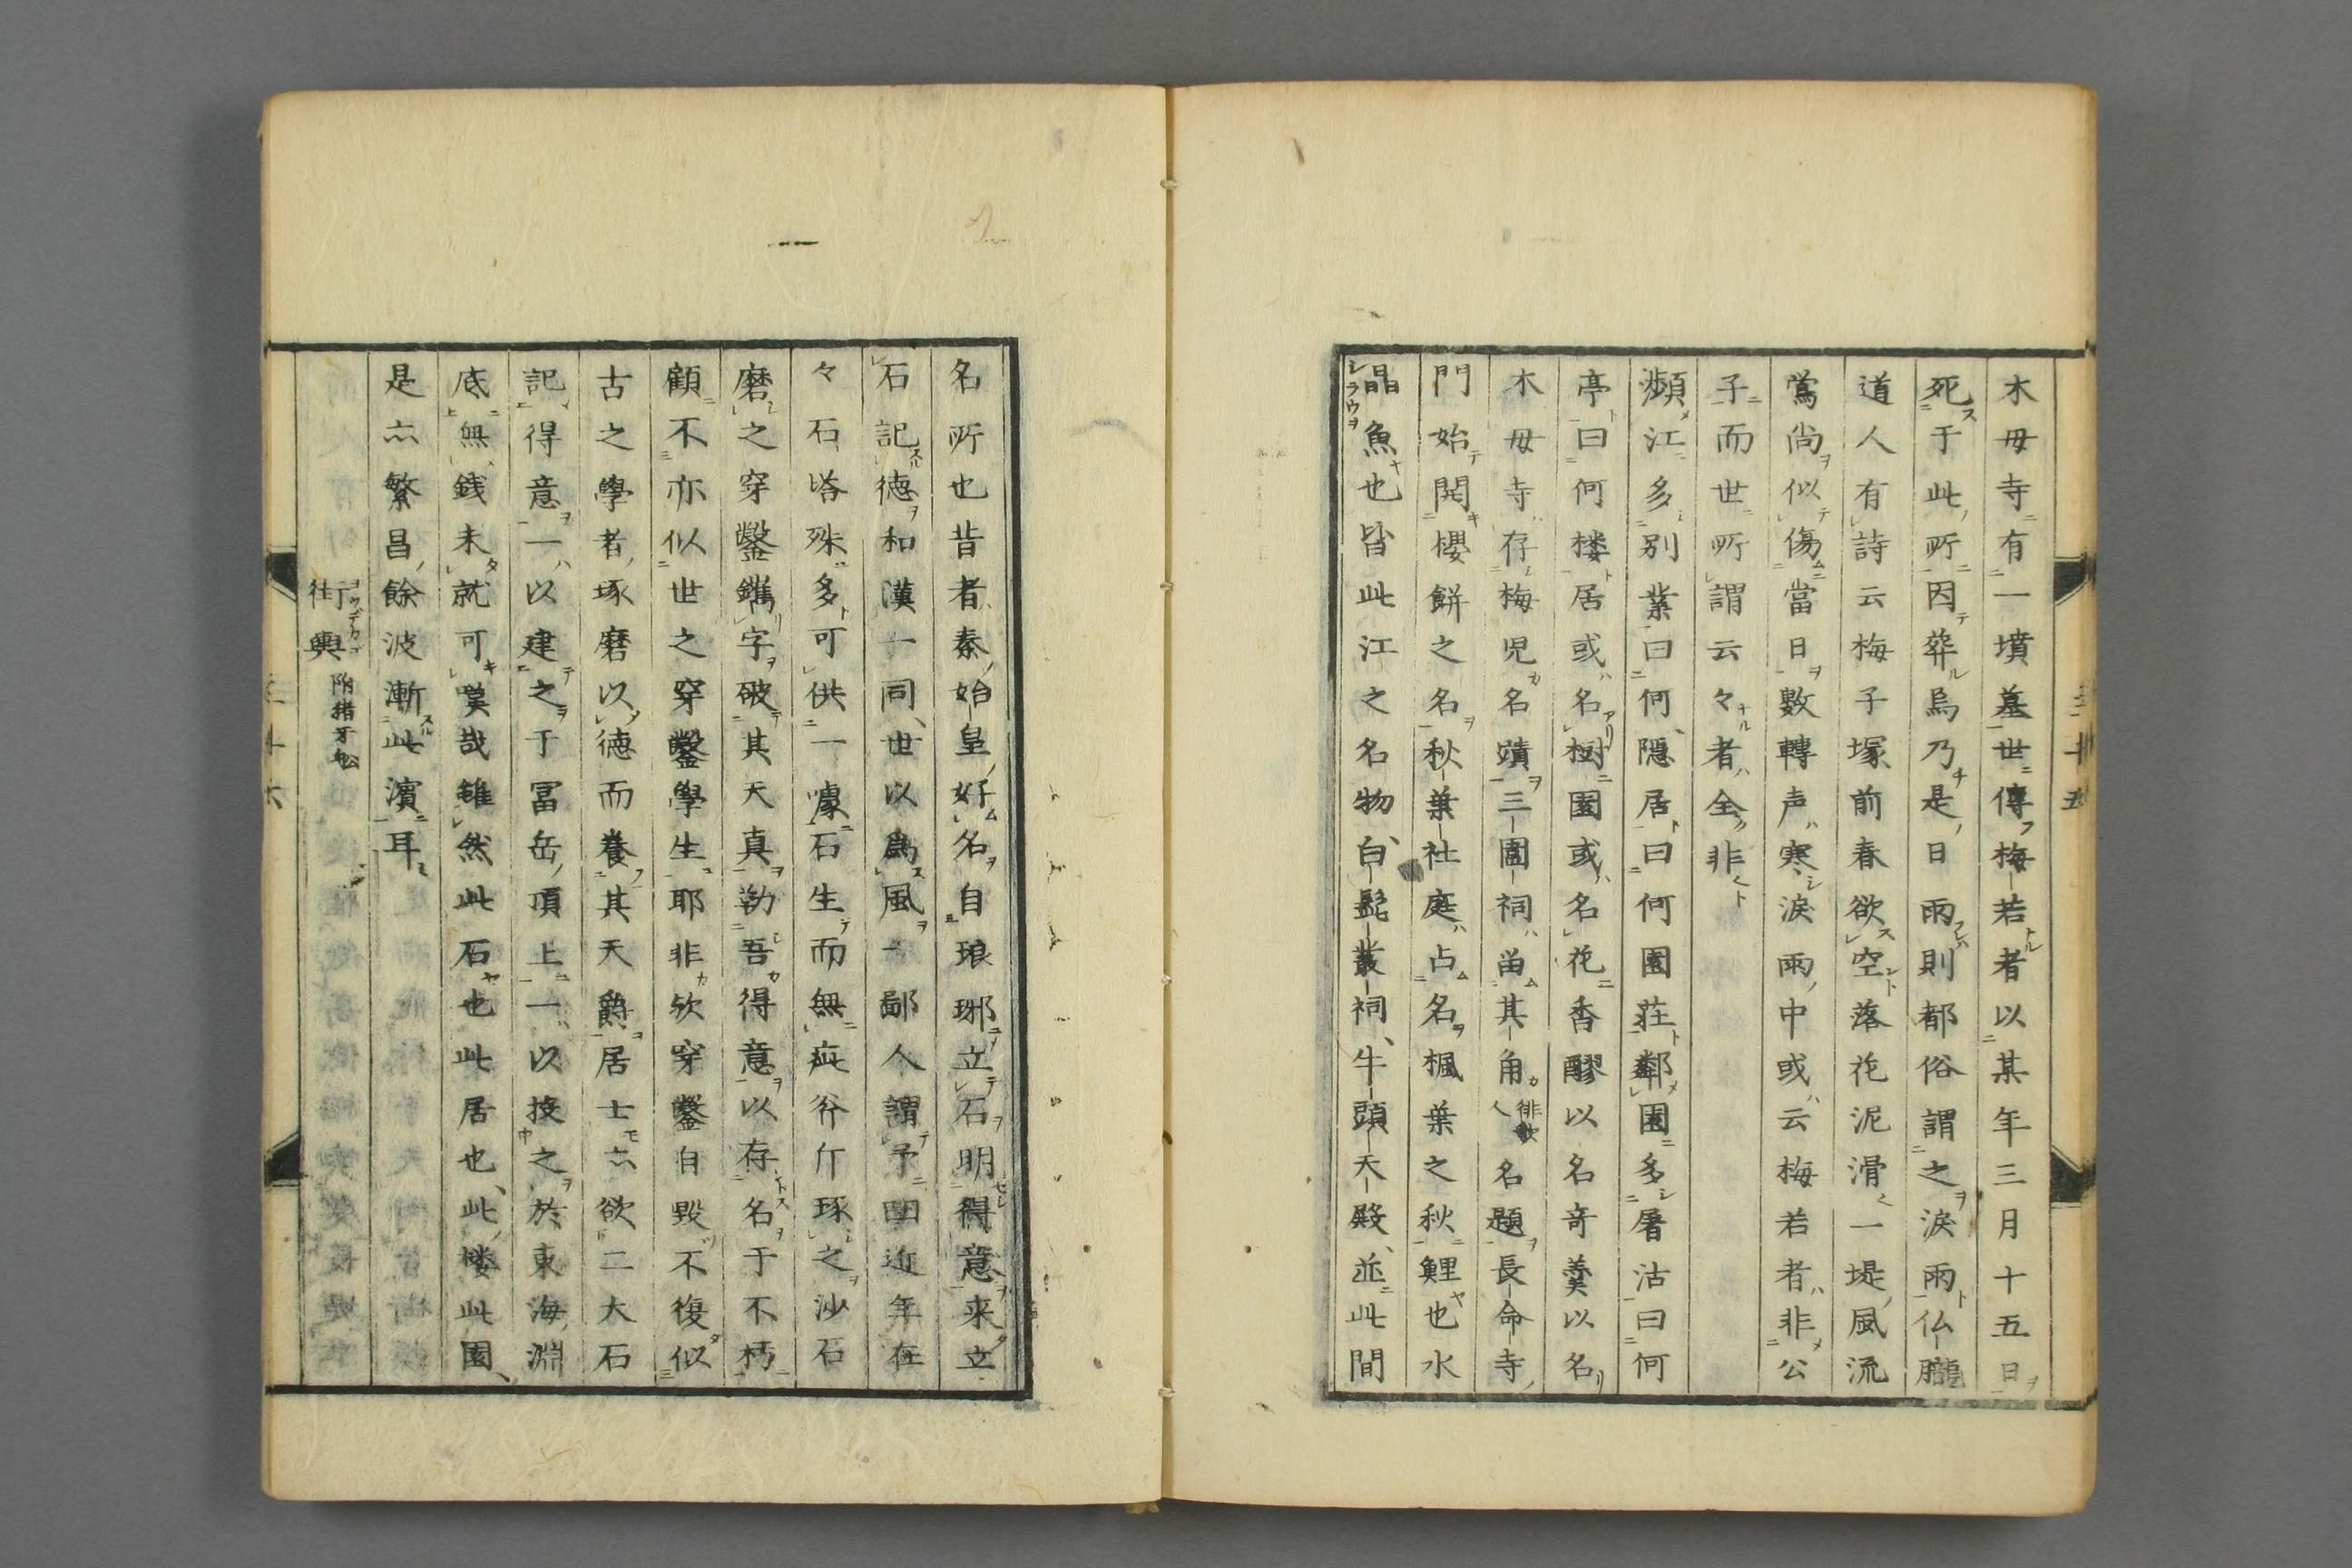 木毋寺有一墳墓世傳梅若者以某年三月十五日
死于此所因葬焉乃是日雨則都俗謂之淚雨仏朧
道人有詩云梅子塚前春欲空落花泥滑一堤風流
鶯尚似傷當日數轉声寒淚雨中或云梅若者非公
子而世所謂云々者全非
瀕江多別業曰何隱居曰何園莊鄰園多屠沽曰何
亭曰何楼居或名樹園或名花香醪以名奇羹以名
木毋寺存梅児名蹟三圍祠畄其角俳歌名題長命寺
門始開櫻餅之名秋葉社庭占名楓葉之秋鯉也水
晶魚也皆此江之名物白髭叢祠牛頭天殿並此間
名所也昔者秦始皇好名自琅琊立石明得意来立
石記德和漢一同世以爲風一鄙人謂予曰近年在
々石塔殊多可供一噱石生而無疵斧斤琢之沙石
磨之穿鑿鐫字破其天真勒吾得意以存名于不朽
顧不亦似世之穿鑿學生耶非欤穿鑿自毀不復似
古之學者琢磨以德而養其天爵居士亦欲二大石
記得意一以建之于冨岳頂上一以投之於東海淵
底無銭未就可嘆哉雖然此石也此居也此楼此園
是亦繁昌餘波漸此濱耳
街輿 附猪牙舩